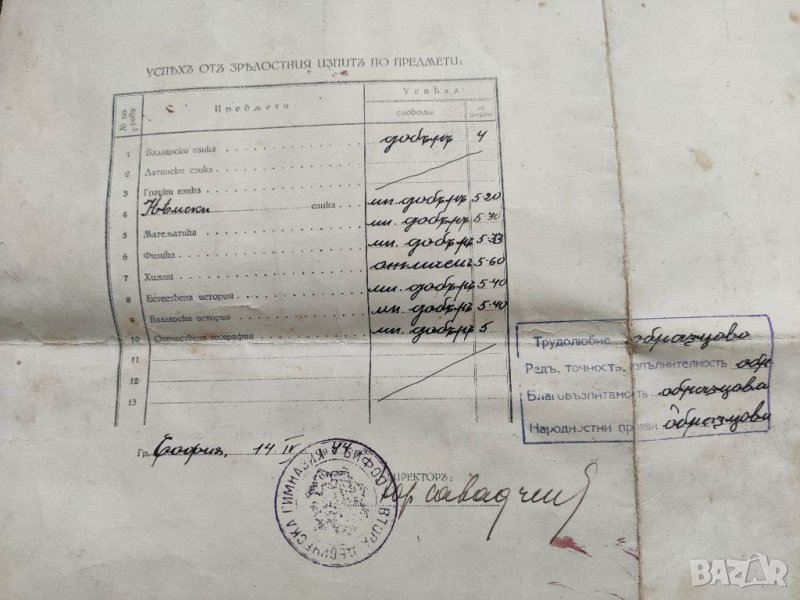 УСПѢХЪ ОТЪ ЗРѢЛОСТНИЯ ИЗПИТЪ ПО ПРЕДМЕТИ:
№ по реда Предмети Успѣха
словомъ съ цифри
1 Български езикъ добъръ 4
2 Латински езикъ
3 Гръцки езикъ
4 Нѣмски езикъ мн. добъръ 5·20
5 Математика мн. добъръ
6 Физика мн. добъръ 5·33
7 Химия отличенъ 5·60
8 Естествена история мн. добъръ 5·40
9 Българска история мн. добъръ 5·40
10 Отечествена география мн. добъръ 5
11
12
13
Трудолюбие образцово
Редъ, точность, изпълнителность обр.
Благовъзпитаность образцова
Народностни прояви образцови
Гр. София, 14 IV 44
ДИРЕКТОРЪ:
ВТОРА ДЕВИЧЕСКА ГИМНАЗИЯ СОФИЯ
BAZAR